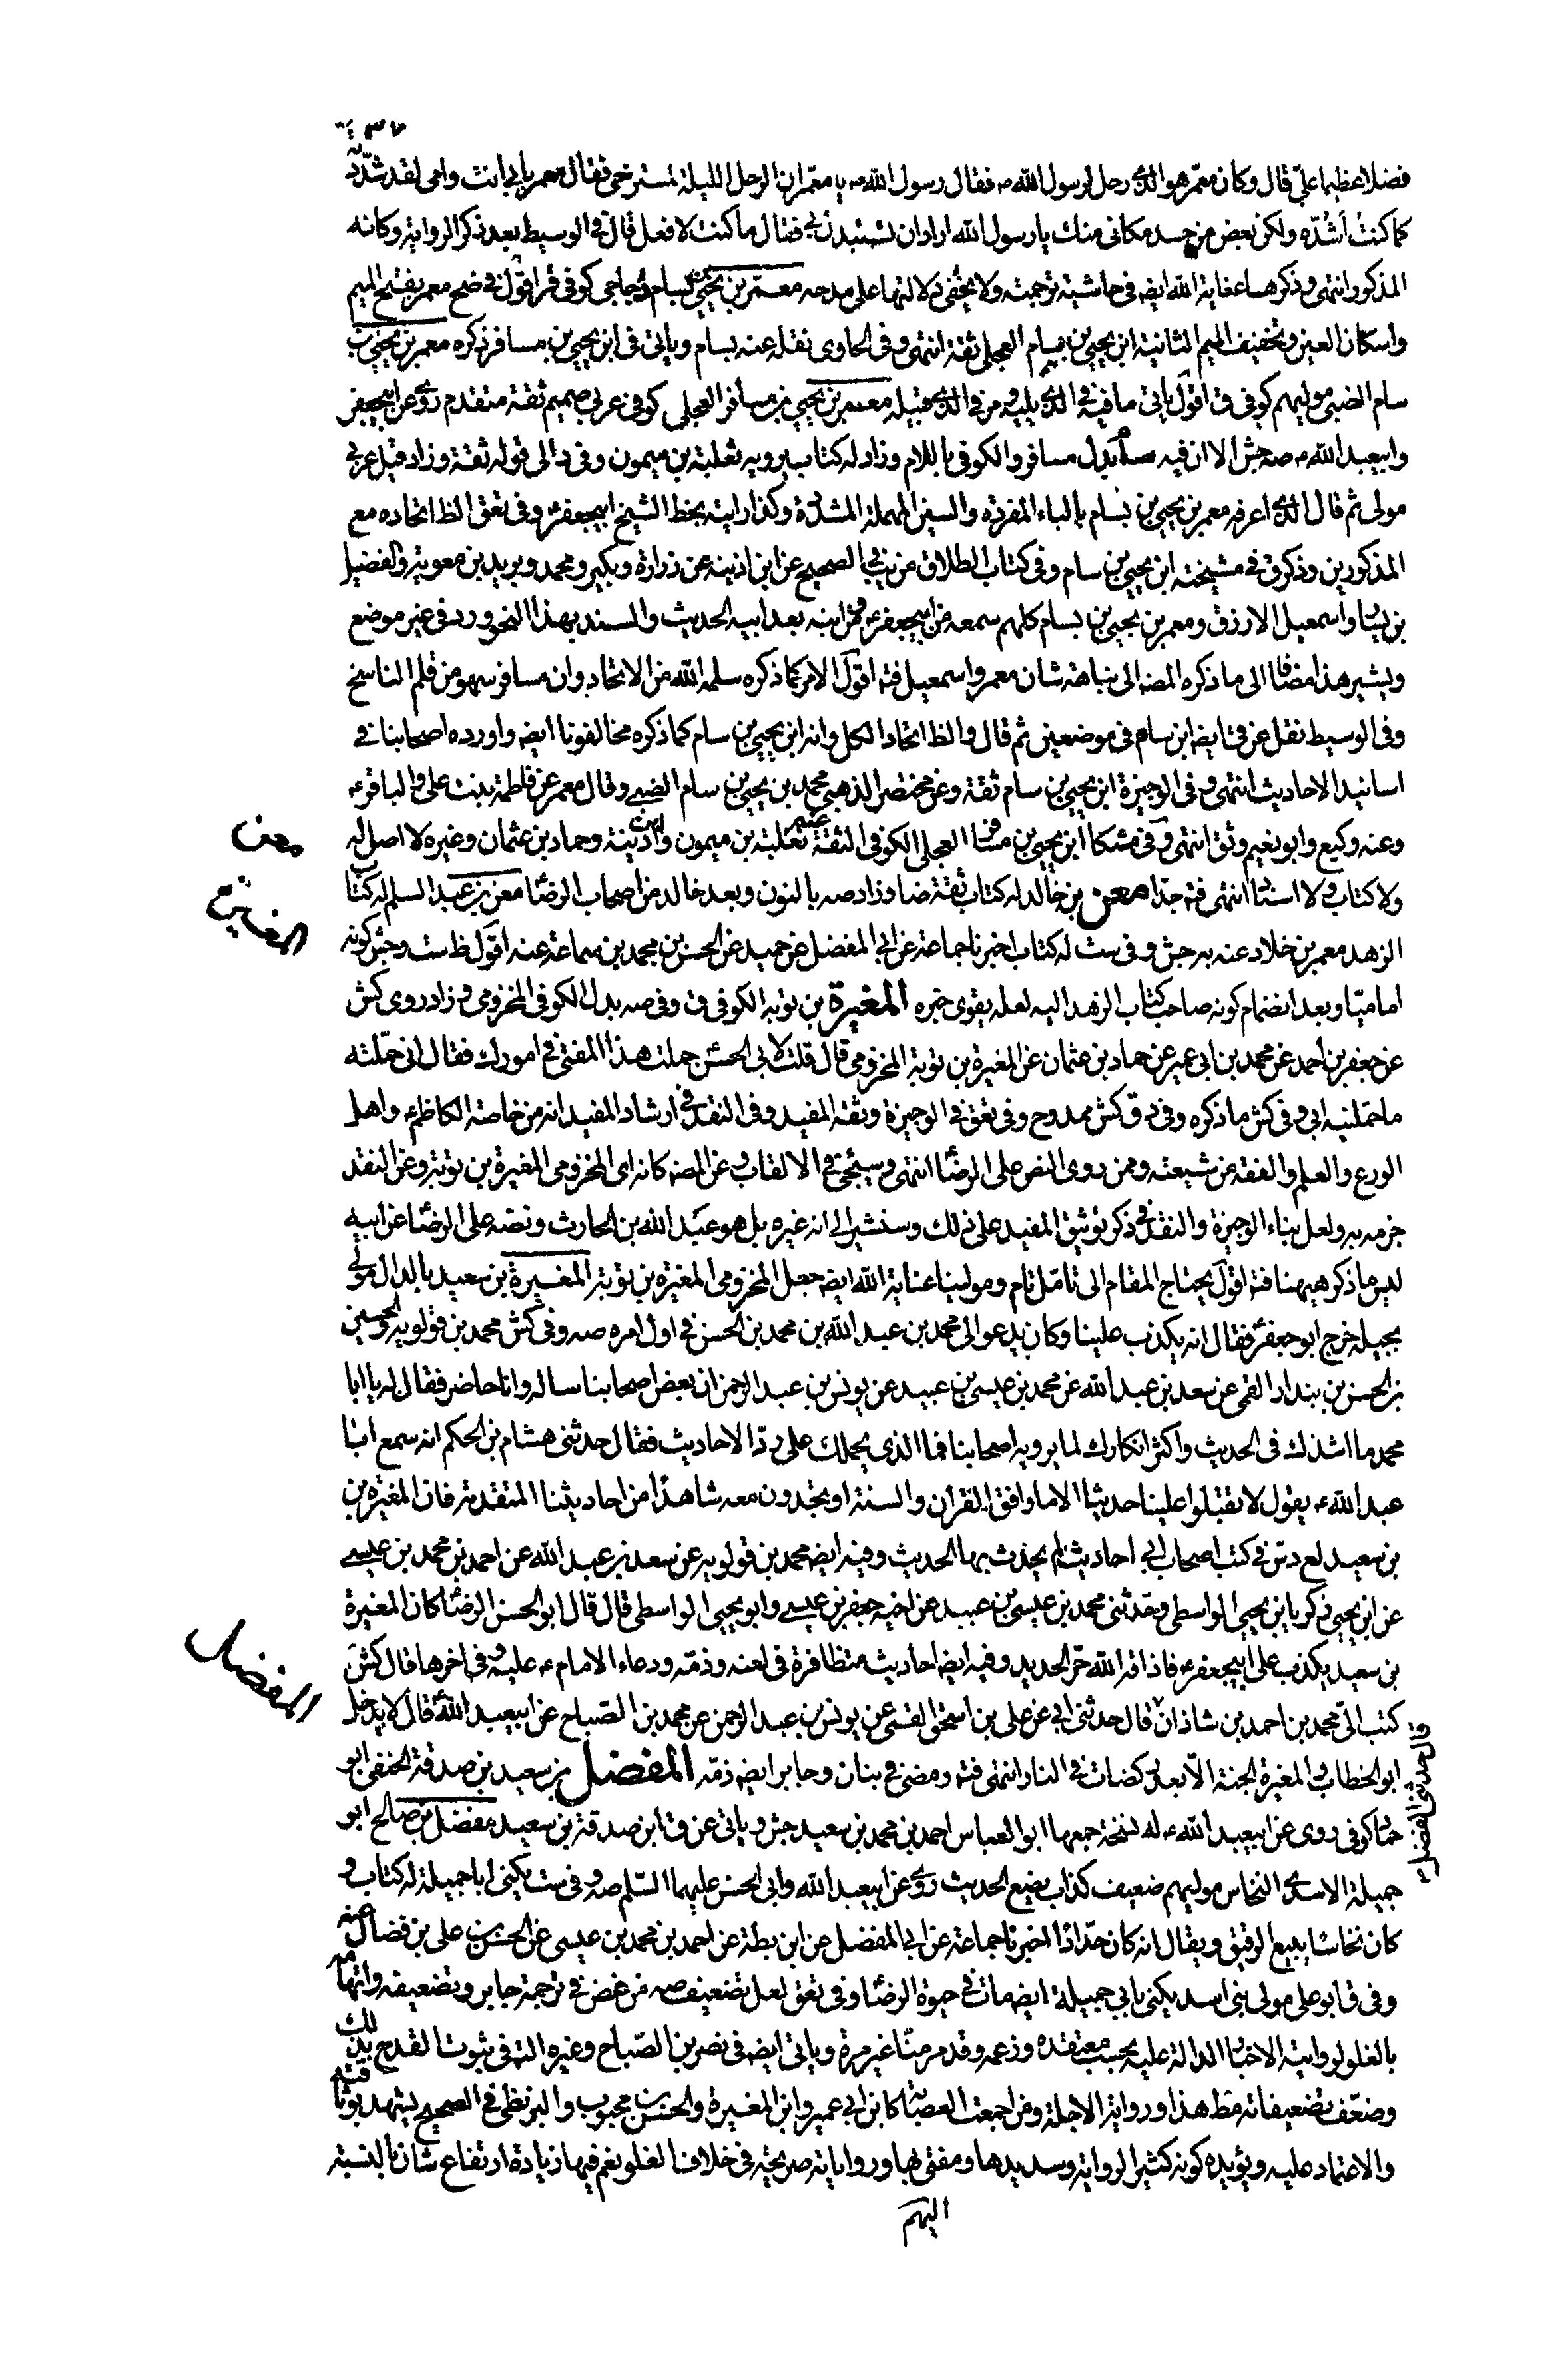 فضلا عظيما علىّ قال وكان معمّر هو الذى رحل لرسول الله ص فقال رسول الله ص يا معمّر ان الرحل الليلة لمسترخى فقال معمر بابى انت وامى لقد شدّدته
كما كنت أشدّه ولكن بعض من حسد مكانى منك يا رسول الله اراد ان تستبدل بى فقال ما كنت لافعل قال فى الوسيط بعد ذكر الرواية وكانه
المذكور انتهى وذكرها عناية الله ايضه فى حاشية ترجمته ولا يخفى دلالتها على مدحه معمّر بن يحيى بن بسام دجاجى كوفى قر اقول فى ضح معمر بفتح الميم
واسكان العين وتخفيف الميم الثانية ابن يحيى بن بسام العجلى ثقة انتهى وفى الحاوى نقله عنه بسام وياتى فى ابن يحيى بن مسافر ذكره معمر بن يحيى بن
سام الضبى موليهم كوفى ق اقول ياتى ما فيه فى الذى يليه ومر فى الذى قبيله معمر بن يحيى بن مسافر العجلى كوفى عربى صميم ثقة متقدم روى عن ابيجعفر
وابيعبد الله ع صه جش الا ان فيه سام بدل مسافر والكوفى باللام وزاد له كتاب يرويه ثعلبة بن ميمون وفى د الى قوله ثقة وزاد قيل عربى
مولى ثم قال الذى اعرفه معمر بن يحيى بن بسام بالباء المفردة والسين المهملة المشددة وكذا رايته بخط الشيخ ابيجعفر ره وفى تعق الظ اتحاده مع
المذكورين وذكر ق فى مشيخته ابن يحيى بن سام وفى كتاب الطلاق من يب فى الصحيح عن ابن اذينه عن زرارة وبكير ومحمد وبريد بن معوية والفضيل
بن يسا واسمعيل الازرق ومعمر بن يحيى بن بسام كلهم سمعه من ابيجعفر ع ومن ابنه بعد ابيه الحديث والسند بهذا النحو ورد فى غير موضع
ويشير هذا مضافا الى ما ذكره المصه الى نباهة شان معمر واسمعيل فته اقول الامر كما ذكره سلمه الله من الاتحاد وان مسافر سهو من قلم الناسخ
وفى الوسيط نقل عن ق ايضه ابن سام فى موضعين ثم قال والظ اتحاد الكل وانه ابن يحيى بن سام كما ذكره مخالفونا ايضه واورده اصحابنا فى
اسانيد الاحاديث انتهى وفى الوجيزة ابن يحيى بن سام ثقة وعن مختصر الذهبى محمد بن يحيى بن سام الضبى وقال معمر عن فاطمة بنت على والباقر ع
وعنه وكيع وابو نعيم وثق انتهى وفى مشكا ابن يحيى بن مسافر العجلى الكوفى الثقة عنه ثعلبة بن ميمون وابن اذينة وحماد بن عثمان وغيره لا اصل له
ولا كتاب ولا اسنا انتهى فته جدّا معن بن خالد له كتاب ثقة ضا وزاد صه بالنون وبعد خالد من اصحاب الرضا معن بن عبد السلم له كتاب
الزهد معمر بن خلاد عنه به جش وفى ست له كتاب اخبرنا جماعة عن ابى المفضل عن حميد عن الحسن بن محمد بن سماعة عنه اقول ظ ست وجش كونه
اماميّا وبعد انضمام كونه صاحب كتاب الزهد اليه لعله يقوى خبره المغيرة بن توبه الكوفى ق وفى صه بدل الكوفى المخزومى وزاد روى كش
عن جعفر بن احمد عن محمد بن ابى عمير عن حماد بن عثمان عن المغيرة بن توبة المخزومى قال قلت لابى الحسن ع حملت هذا الفتى فى امورك فقال انى حمّلته
ما حمّلنيه ابى وفى كش ما ذكره وفى د ق كش ممدوح وفى تعق فى الوجيزة وثقه المفيد وفى النقد فى ارشاد المفيد انه من خاصة الكاظم ع واهل
الورع والعلم والفقه عن شيعته وممن روى النص على الرضا انتهى وسيجئ فى الالقاب عن المصه كانه اى المخزومى المغيرة بن توبة وعن النقد
جزمه به ولعل بناء الوجيزة والنقد فى ذكر توثيق المفيد على ذلك وسنشير الى انه غيره بل هو عبد الله بن الحارث ونصه على الرضا عن ابيه
ليس ما ذكر هيهنا فته اقول يحتاج المقام الى تامّل تام ومولينا عناية الله ايضه جعل المخزومى المغيرة بن توبة المغيرة بن سعيد بالدال مولى
بجيله خرج ابو جعفر ع فقال انه يكذب علينا وكان يدعو الى محمد بن عبد الله بن محمد بن الحسن فى اول امره صه وفى كش محمد بن قولويه والحسين
بن الحسن بن بندار القمى عن سعد بن عبد الله عن محمد بن عيسى بن عبيد عن يونس بن عبد الرحمن ان بعض اصحابنا ساله وانا حاضر فقال له يا ابا
محمد ما اشدك فى الحديث واكثر انكارك لما يرويه اصحابنا فما الذى يحملك على ردّ الاحاديث فقال حدثنى هشام بن الحكم انه سمع ابا
عبد الله ع يقول لا تقبلوا علينا حديثا الا ما وافق القران والسنة او تجدون معه شاهدا من احاديثنا المتقدمة فان المغيرة بن
بن سعيد لع دسّ فى كتب اصحاب ابى احاديث لم يحدث بها الحديث وفيه ايضه محمد بن قولويه عن سعد بن عبد الله عن احمد بن محمد بن عيسى
عن ابن يحيى زكريا بن يحيى الواسطى وحدثنى محمد بن عيسى بن عبيد عن اخيه جعفر بن عيسى وابو يحيى الواسطى قال قال ابو الحسن الرضا كان المغيرة
بن سعيد يكذب على ابيجعفر ع فاذاقه الله حرّ الحديد وفيه ايضه احاديث متظافرة فى لعنه وذمّه ودعاء الامام ع عليه وفى اخرها قال كش
كتب الىّ محمد بن احمد بن شاذان قال حدثنى ابى عن على بن اسحق القمى عن يونس بن عبد الرحمن عن محمد بن الصباح عن ابيعبد الله ع قال لا يدخل
قال حدثنى الفضل
ابو الخطاب والمغيرة الجنة الا بعد ركضات فى النار انتهى فته ومضى فى بنان وجابر ايضه ذمّه المفضل بن سعيد بن صدقة الحنفى ابو
حماد كوفى روى عن ابيعبد الله ع له نسخة جمعها ابو العباس احمد بن محمد بن سعيد جش وياتى عن ق ابن صدقة بن سعيد مفضل بن صالح ابو
جميلة الاسدى النخاس موليهم ضعيف كذاب يضيع الحديث روى عن ابيعبد الله وابى الحسن عليهما السلم صه وفى ست يكنى ابا جميلة له كتاب و
كان نخاسا يبيع الرقيق ويقال انه كان حدّادا اخبرنا جماعة عن ابى المفضل عن ابن بطة عن احمد بن محمد بن عيسى عن الحسن بن على بن فضال عنه
وفى ق ابو على مولى بنى اسد يكنى بابى جميلة ايضه مات فى حيوة الرضا وفى تعق لعل تضعيف صه من غض فى ترجمة جابر وتضعيفه واتهامه
بالغلو لروايته الاخبار الدالة عليه بحسب معتقده وزعمه وقد مر منّا غير مرة وياتى ايضه فى نصر بن الصباح وغيره التـ فى ثبوت القدح بذلك
وضعّف تضعيفاته مط هذا ورواية الاجلة ومن اجمعت العصابة كابن ابى عمير وابن المغيرة والحسن بن محبوب والبزنطى فى الصحيح يشهد بوثاقته
والاعتماد عليه ويؤيده كونه كثير الرواية وسديدها ومفتى بها ورواياته صريحة فى خلاف الغلو نعم فيها زيادة ارتفاع شان بالنسبة
اليهم
معن
المغيرة
المفضل